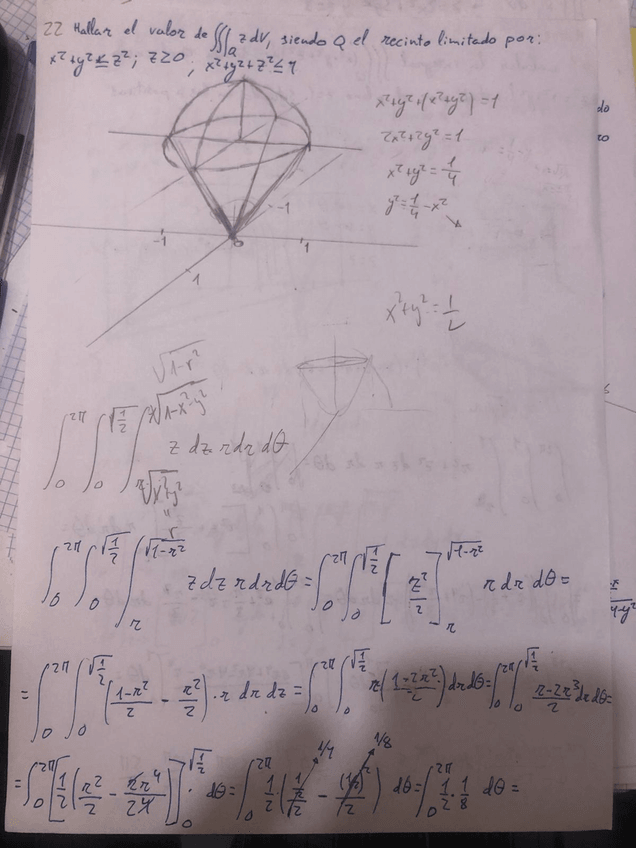 22 Hallar el valor de ∭_Q z dV, siendo Q el recinto limitado por:
x²+y² ≤ z²; z≥0 ; x²+y²+z² ≤ 1
x²+y²+(x²+y²) = 1
2x²+2y² = 1
x²+y² = 1/4
y² = 1/4 - x²
-1 0 1
-1
1
x²+y² = 1/2
√1-r²
∫₀^2π ∫₀^√1/2 ∫_√x²+y²^√1-x²-y² z dz r dr dθ
"
r
∫₀^2π ∫₀^√1/2 ∫_r^√1-r² z dz r dr dθ = ∫₀^2π ∫₀^√1/2 [z²/2]_r^√1-r² r dr dθ =
= ∫₀^2π ∫₀^√1/2 (1-r²/2 - r²/2) · r dr dz = ∫₀^2π ∫₀^√1/2 r(1-2r²/2) dr dθ = ∫₀^2π ∫₀^√1/2 r-2r³/2 dr dθ =
= ∫₀^2π [1/2 (r²/2 - 2r⁴/2 4)]₀^√1/2 dθ = ∫₀^2π 1/2 · (1/2/2 - (1/2)²/2) dθ = ∫₀^2π 1/2 · 1/8 dθ =
1/4 1/8